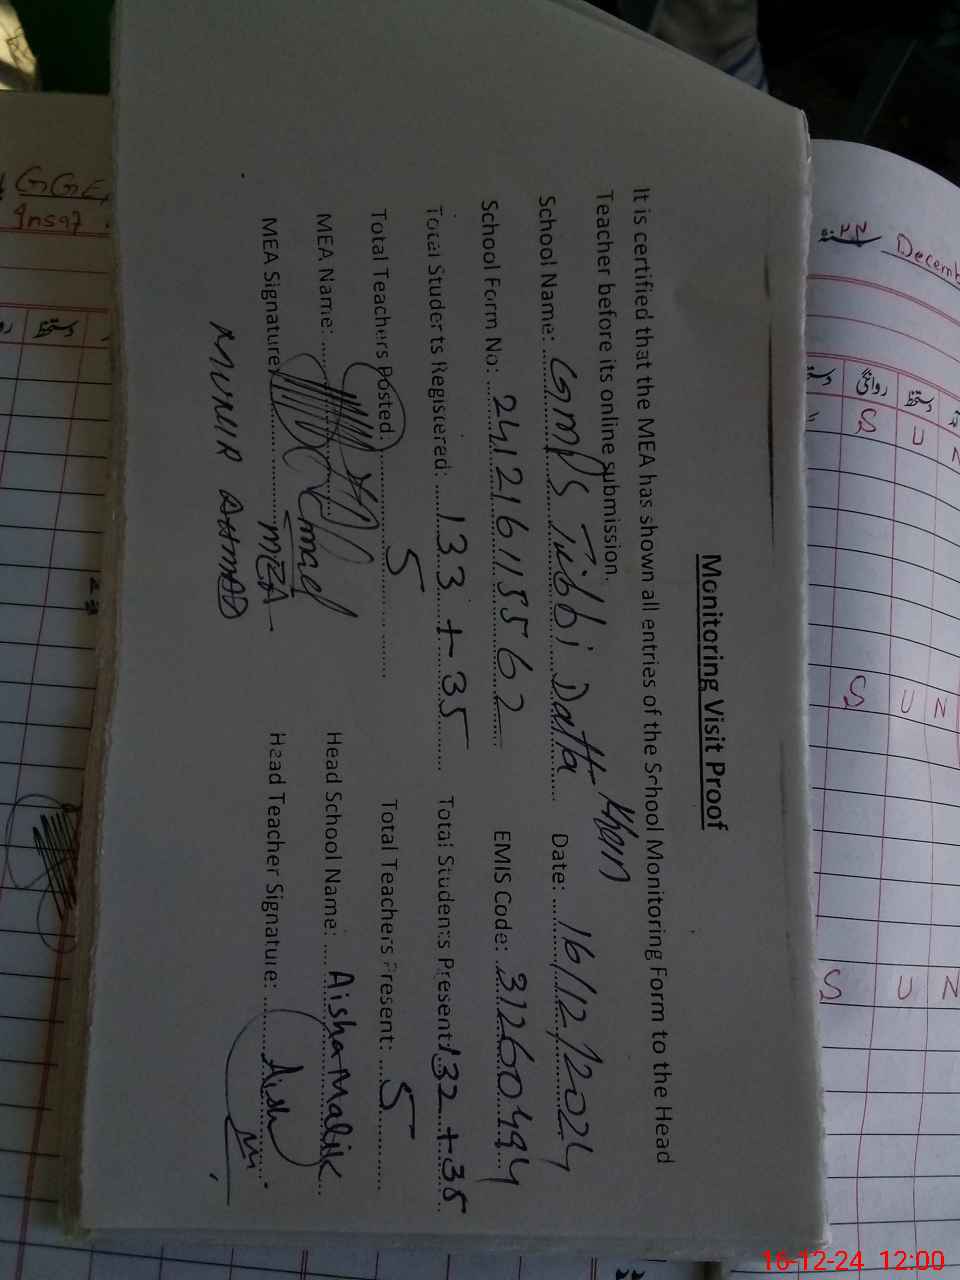 Monitoring Visit Proof
It is certified that the MEA has shown all entries of the School Monitoring Form to the Head
Teacher before its online submission.
School Name: GMPS Tibbi Datta Khan Date: 16/12/2024
School Form No: 241216115562 EMIS Code: 31260494
Total Students Registered: 133 + 35 Total Students Present: 132 + 35
Total Teachers Posted: 5 Total Teachers Present: 5
MEA Name: Head School Name: Aisha Malik
MEA Signature: MEA Head Teacher Signature:
MUNIR AHMAD
GGE
December
روانگی دستخط
S U N
S U N
S U N
دستخط
16-12-24 12:00